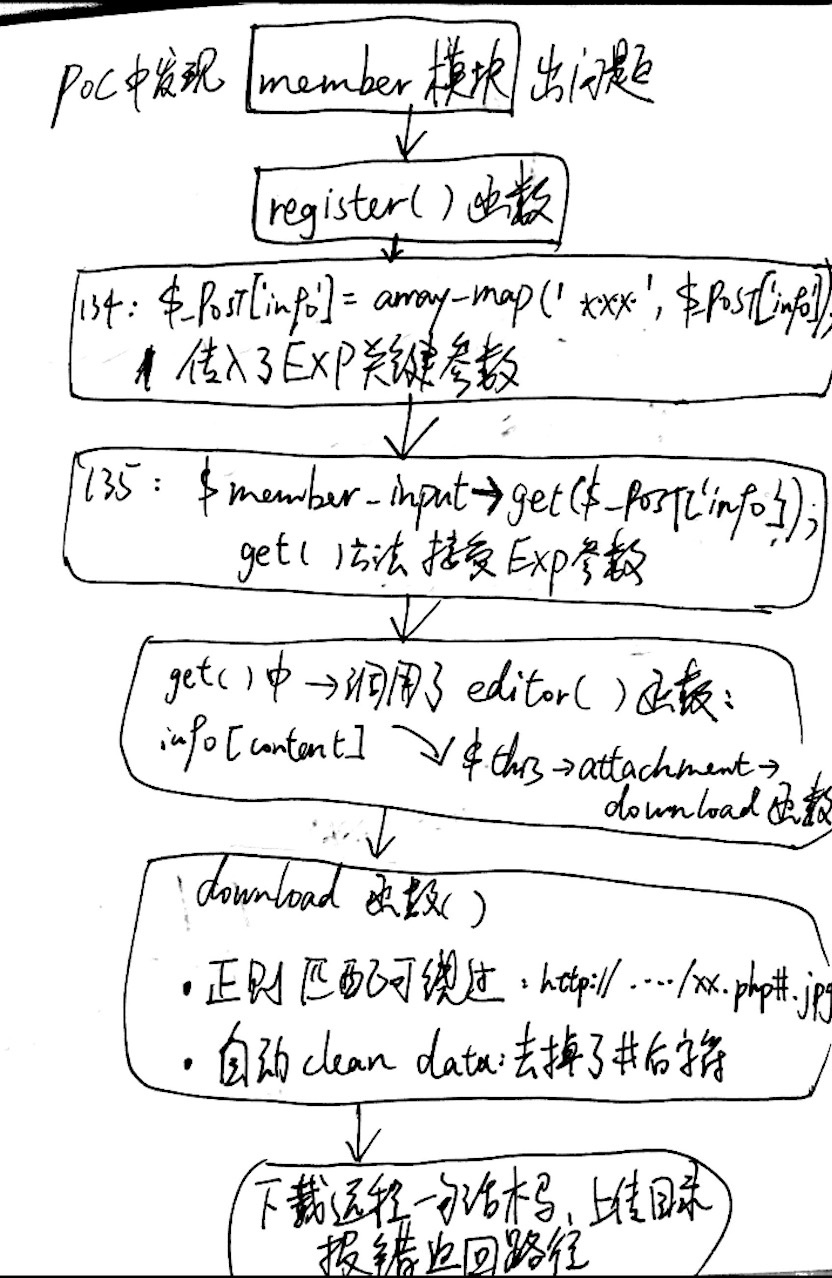 POC中发现 member 模块 出问题
register( ) 函数
134: $_POST['info'] = array_map(' xxx ', $_POST['info']);
传入了EXP关键参数
135: $member_input→get($_POST['info']);
get( )方法 接受 Exp参数
get( )中→调用了 editor( ) 函数:
info[content] → $this→attachment→
download 函数
download 函数( )
• 正则 匹配可绕过: http:// ..../xx.php#.jpg
• 自动 clean data: 去掉了#后字符
下载远程一句话木马, 上传目录
报错返回路径